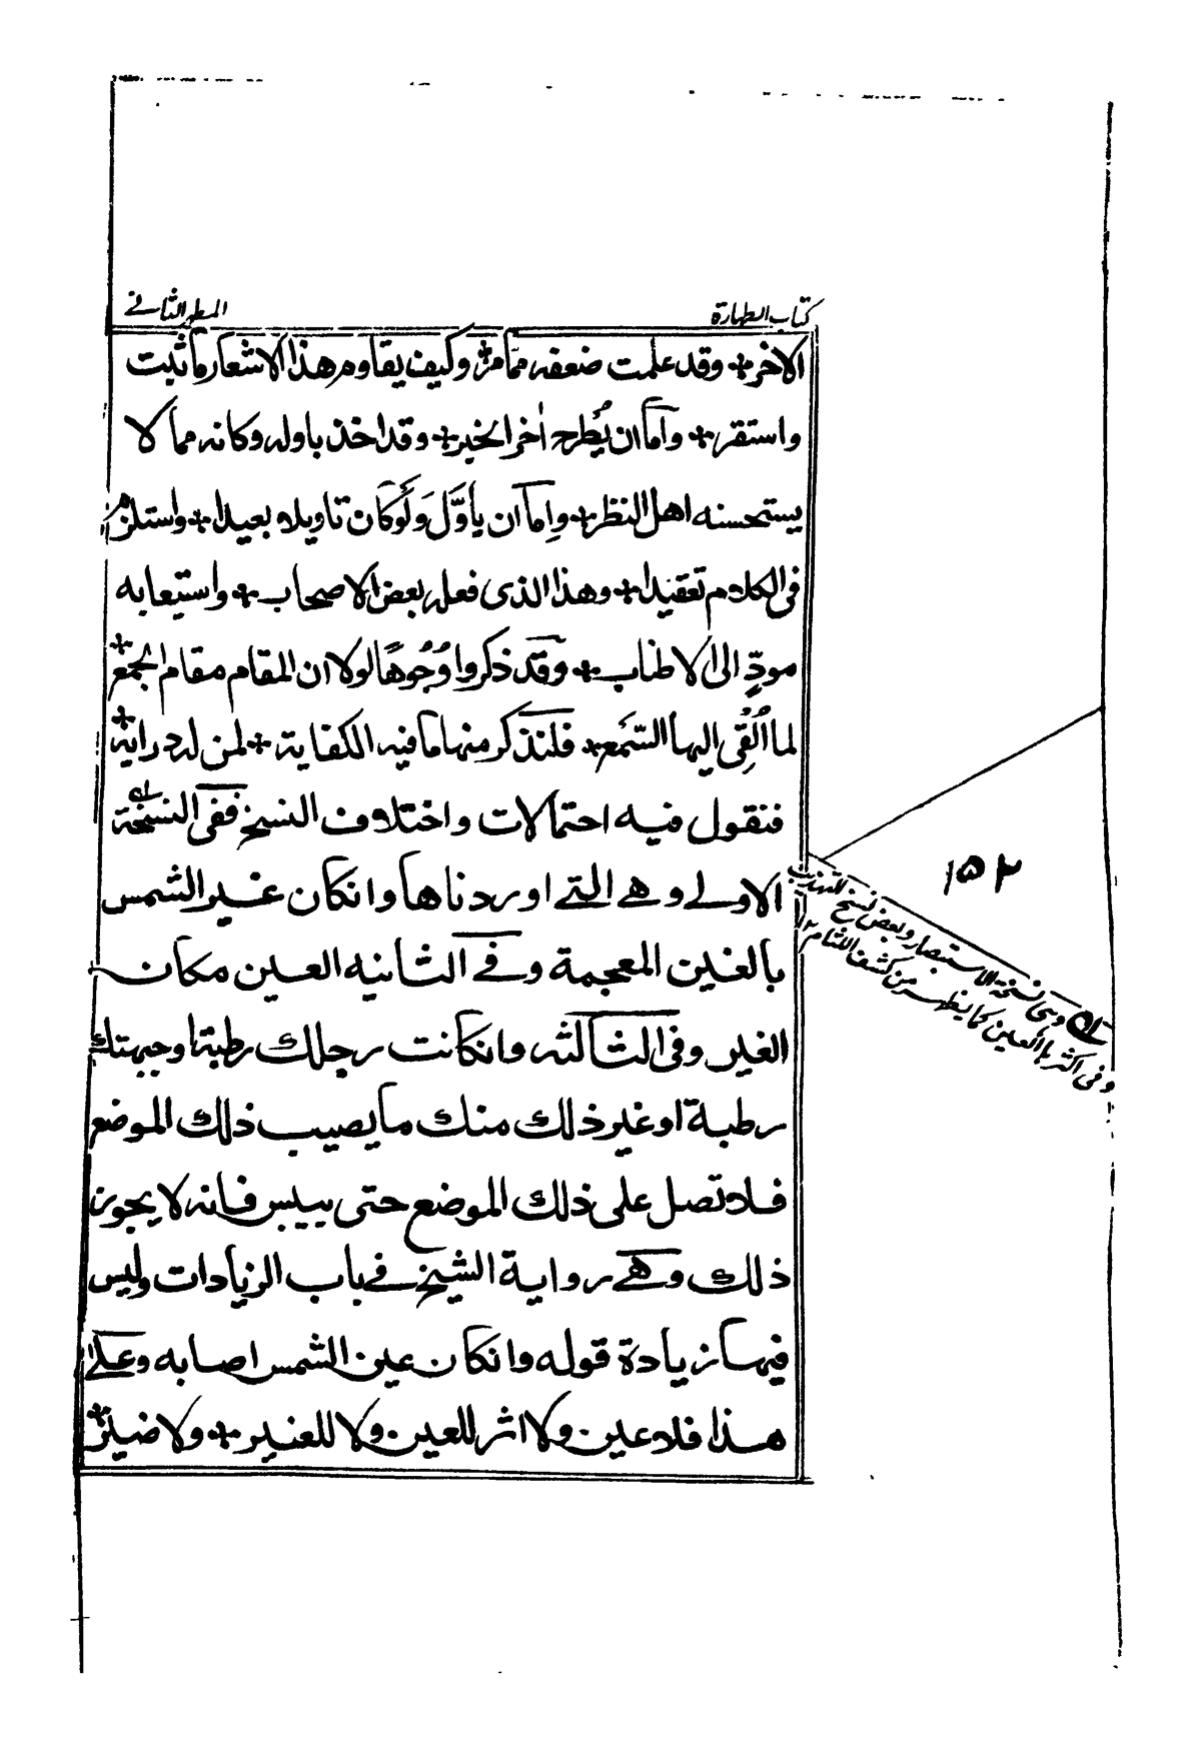 كتاب الطهارة
المطهر الثاني
الاخر + وقد علمت ضعفه ممامر + وكيف يقاوم هذا الاشعار ما ثبت
واستقر + وآما ان يُطرح اٰخر الخبر + وقد اخذ باوله وكانه مما لا
يستحسنه اهل النظر + واِما ان يأوَّل وَلَوكان تاويلا بعيدا + واستلزم
فى الكلام تعقيدا + وهذا الذى فعله بعض الاصحاب + واستيعابه
مودٍّ الى الاطناب + وقد ذكروا وُجُوهًا لولا ان المقام مقام الجمع +
لما اُلْقِى اليها السّمع + فلنذكر منها ما فيه الكفاية + لمن له دراية +
فنقول فيه احتمالات واختلاف النسخ ففى النسخة
الاولے وهے التے اوردناها وانكان غير الشمس
بالغين المعجمة وفے الثانيه العين مكان
الغير وفى الثالثه وانكانت رجلك رطبة اوجبهتك
رطبة اوغير ذلك منك ما يصيب ذلك الموضع
فلا تصل على ذلك الموضع حتى ييبس فانه لا يجوز
ذلك وهے رواية الشيخ فے باب الزيادات وليس
فيها زيادة قوله وانكان عين الشمس اصابه وعلى
هذا فلا عين ولا اثر للعين ولا للغير + ولا ضير +
١٥٢
له وهى نسخة الاستبصار وبعض نسخ التهذيب
وفى اكثرها العين كما يظهر من كشف اللثام ١٢